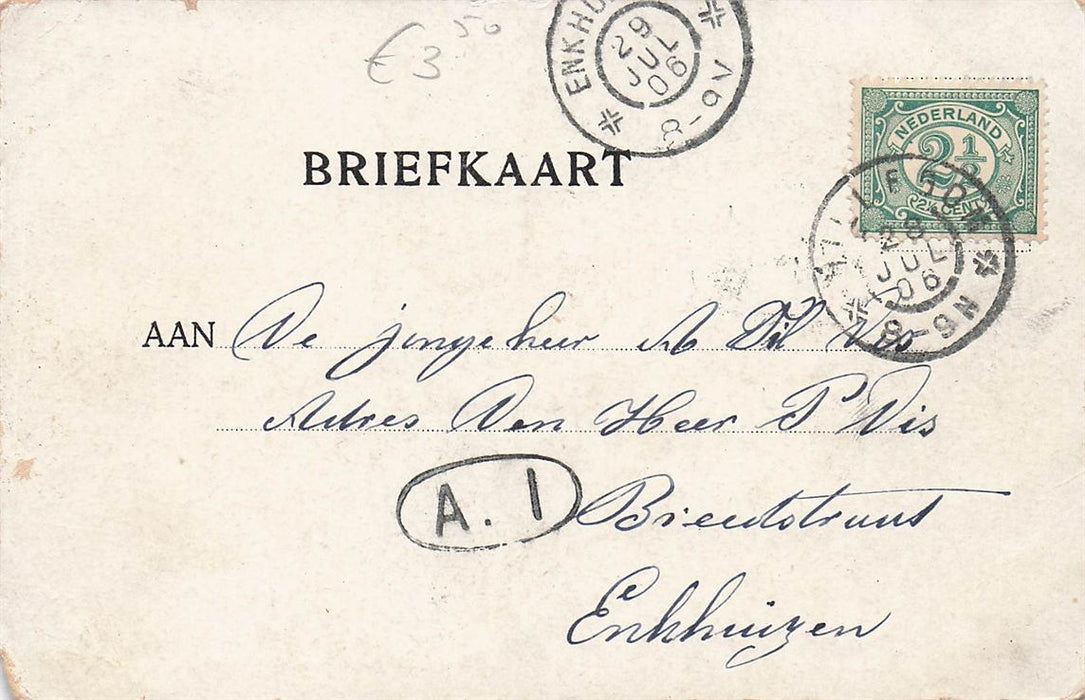 €3 50
ENKHU
29
JUL
06
8-9V
BRIEFKAART
NEDERLAND
2½
2½ CENT
28
JUL
06
8-9N
AAN De jongeheer A Vis
Adres Den Heer P Vis
A. I
Breedstraat
Enkhuizen